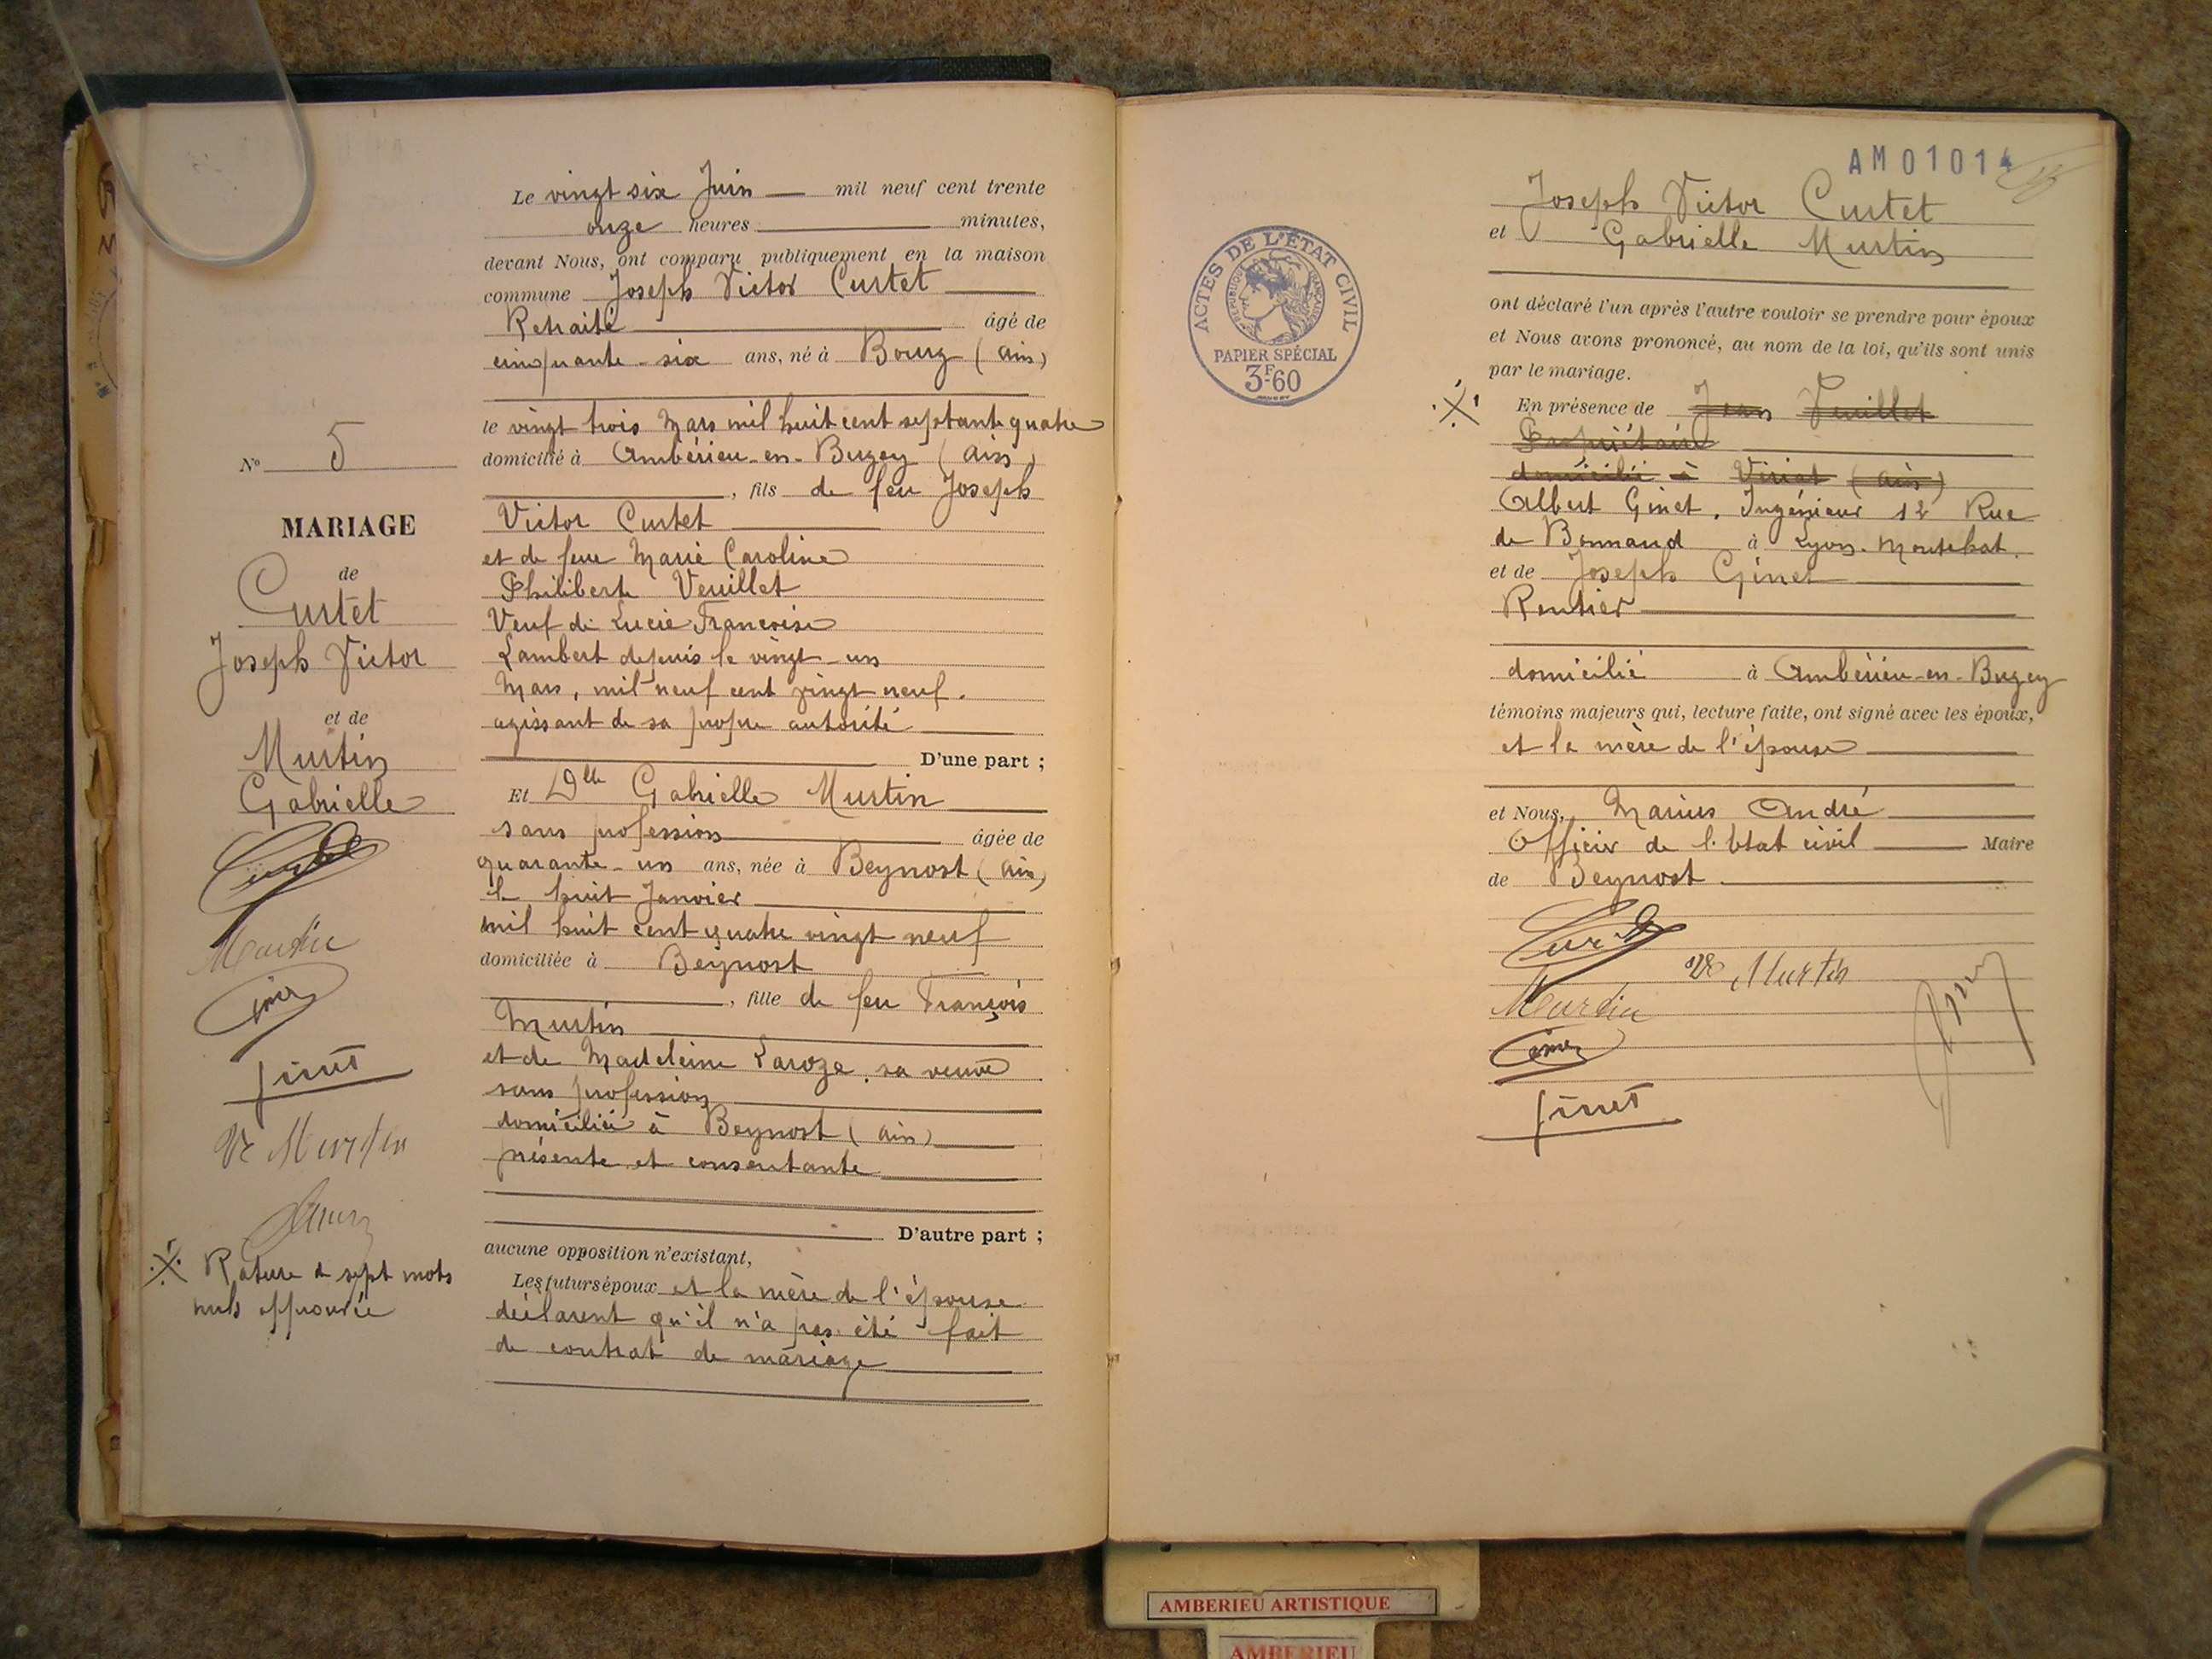 N° 5
MARIAGE
de
Curtet
Joseph Victor
et de
Murtin
Gabrielle
Murtin
ginet
Ve Murtin
Rature de sept mots
nuls approuvée
Le vingt six Juin mil neuf cent trente
onze heures minutes,
devant Nous, ont comparu publiquement en la maison
commune Joseph Victor Curtet
Retraité âgé de
cinquante-six ans, né à Bourg (Ain)
le vingt trois Mars mil huit cent septante quatre
domicilié à Ambérieu-en-Bugey (Ain)
, fils de feu Joseph
Victor Curtet
et de feue Marie Caroline
Philiberte Veuillet
Veuf de Lucie Françoise
Lambert depuis le vingt-un
Mars, mil neuf cent vingt neuf.
agissant de sa propre autorité
D'une part ;
Et Dlle Gabrielle Murtin
sans profession âgée de
quarante-un ans, née à Beynost (Ain)
le huit Janvier
mil huit cent quatre vingt neuf
domiciliée à Beynost
, fille de feu François
Murtin
et de Madeleine Laroze, sa veuve
sans profession
domiciliée à Beynost (Ain)
présente et consentante
D'autre part ;
aucune opposition n'existant,
Les futurs époux et la mère de l'épouse
déclarent qu'il n'a pas été fait
de contrat de mariage
AM01014
ACTES DE L'ÉTAT CIVIL
RÉPUBLIQUE FRANÇAISE
PAPIER SPÉCIAL
3F60
Joseph Victor Curtet
et Gabrielle Murtin
ont déclaré l'un après l'autre vouloir se prendre pour époux
et Nous avons prononcé, au nom de la loi, qu'ils sont unis
par le mariage.
En présence de Jean Veuillet
Propriétaire
domicilié à Viriat (Ain)
Albert Ginet, Ingénieur 12 Rue
de Bonnand à Lyon-Montchat.
et de Joseph Ginet
Rentier
domicilié à Ambérieu-en-Bugey
témoins majeurs qui, lecture faite, ont signé avec les époux,
et la mère de l'épouse
et Nous, Marius André
Officier de l'Etat civil Maire
de Beynost.
Curtet
Ve Murtin
Murtin
ginet
AMBERIEU ARTISTIQUE
AMBERIEU